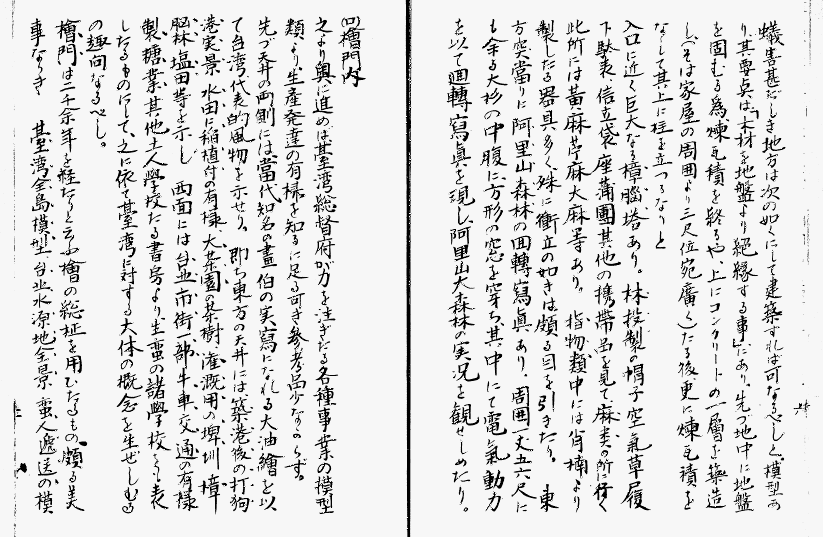 蟻害甚だしき地方は次の如くにして建築すれば可なるべしと、模型あ
り、其要点は「木材を地盤より絶縁する事」にあり、先づ地中に地盤
を固むる為煉瓦積を終るや、上にコンクリートの一層を築造
し(そは家屋の周囲より三尺位宛廣く)たる後、更に煉瓦積を
なして其上に柱を立つるなりと
入口に近く巨大なる樟腦塔あり。林投製の帽子、空氣草履
下駄表、信玄袋、座蒲團其他の携帯品を見て麻類の所に行く
此所には黃麻苧麻大麻等あり。指物類中には肖楠より
製したる器具多く、殊に衝立の如きは頗る目を引きたり。 東
方突當りに阿里山森林の回轉寫眞あり、周囲一丈五六尺に
も余る大杉の中腹に方形の窓を穿ち其中にて電氣動力
を以て廻轉寫眞を現し阿里山大森林の実況を観せしめたり。
四檜門内
之より奥に進めば臺湾総督府が力を注ぎたる各種事業の模型
類より生産発達の有様を知るに足る可き参考品少なからず。
先づ天井の両側には當代知名の畫伯の実寫になれる大油繪を以
て台湾代表的風物を示せり、即ち東方の天井には築港後の打狗
港実景、水田に稲植付の有様、大茶園の茶樹、灌漑用の埤圳、樟
脳林、塩田等を示し 西面には台北市街一部、牛車交通の有様
製糖業、其他土人學校たる書房より生蛮の諸學校を表
したるものにして、之に依て臺湾に対する大体の概念を生ぜしむる
の趣向なるべし。
檜門は二千余年を経たりと云ふ檜の総柾を用ひたるもの、頗る美
事なりき 臺湾全島模型、台北水源地全景、蛮人遞送の模